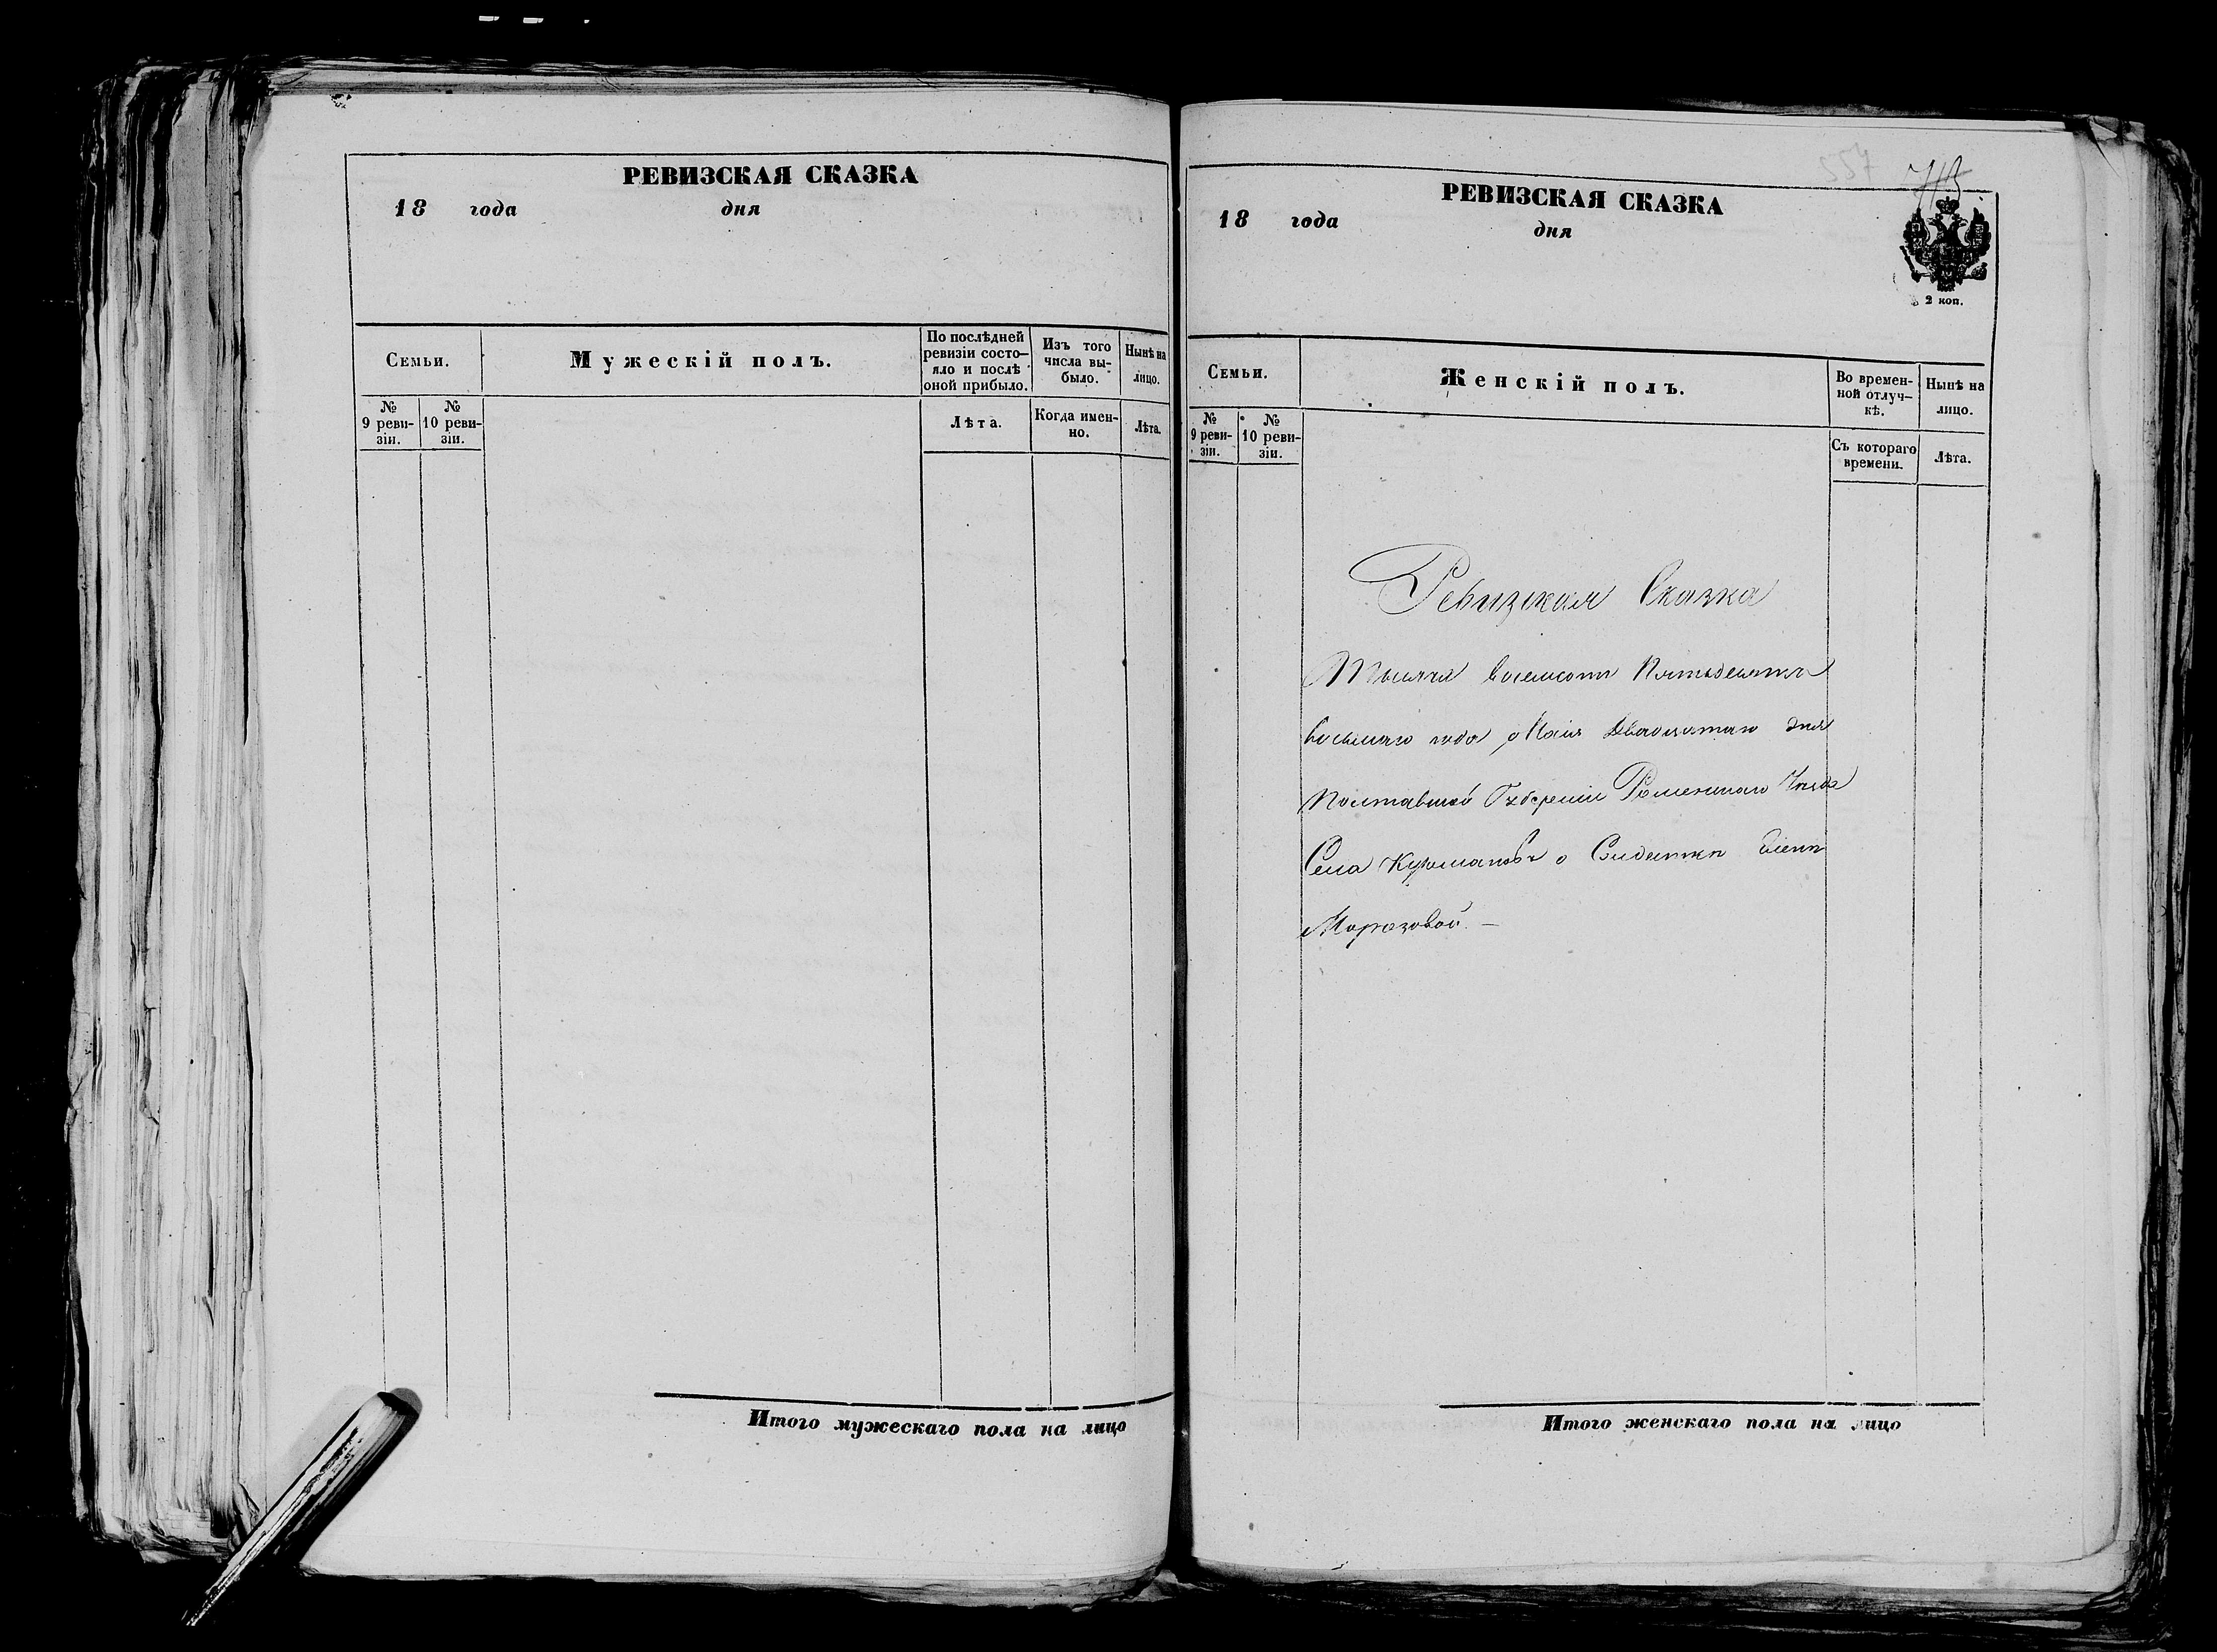 РЕВИЗСКАЯ СКАЗКА
18 года дня
Семьи.
Мужескій полъ.
По послѣдней ревизіи состо-
яло и послѣ
оной прибыло.
Изъ того
числа вы-
было.
Нынѣ на
лицо.
№
9 реви-
зіи.
№
10 реви-
зіи.
Лѣта.
Когда имен-
но.
Лѣта.
Итого мужескаго пола на лицо
РЕВИЗСКАЯ СКАЗКА
18 года дня
2 коп.
Семьи.
Женскій полъ.
Во времен-
ной отлуч-
кѣ.
Нынѣ на
лицо.
№
9 реви-
зіи.
№
10 реви-
зіи.
Съ котораго
времени.
Лѣта.
Ревизская Сказка
Тысяча восемсотъ Пятьдесятъ
восьмаго года Маія Двадцатаго дня
Полтавской Губерніи Роменскаго Уѣзда
Села о Солдаткѣ Еленѣ
Морозовой. —
Итого женскаго пола на лицо